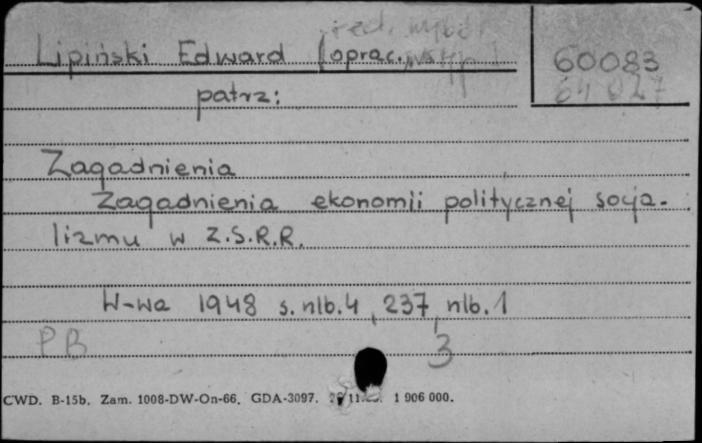 red. wybór
Lipiński Edward (oprac., wstęp)
60083
64027
patrz:
Zagadnienia
Zagadnienia ekonomii politycznej socja-
lizmu w Z.S.R.R.
W-wa 1948 s. nlb. 4, 237, nlb. 1
PB
3
CWD. B-15b. Zam. 1008-DW-On-66. GDA-3097. 1 906 000.